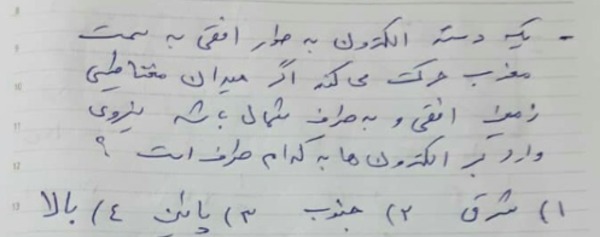 - یک دسته الکترون به طور افقی به سمت
مغرب حرکت می کند اگر میدان مغناطیسی
زمین افقی و به طرف شمال باشد نیروی
وارد بر الکترون ها به کدام طرف است ؟
۱) شرق ۲) جنوب ۳) پائین ۴) بالا